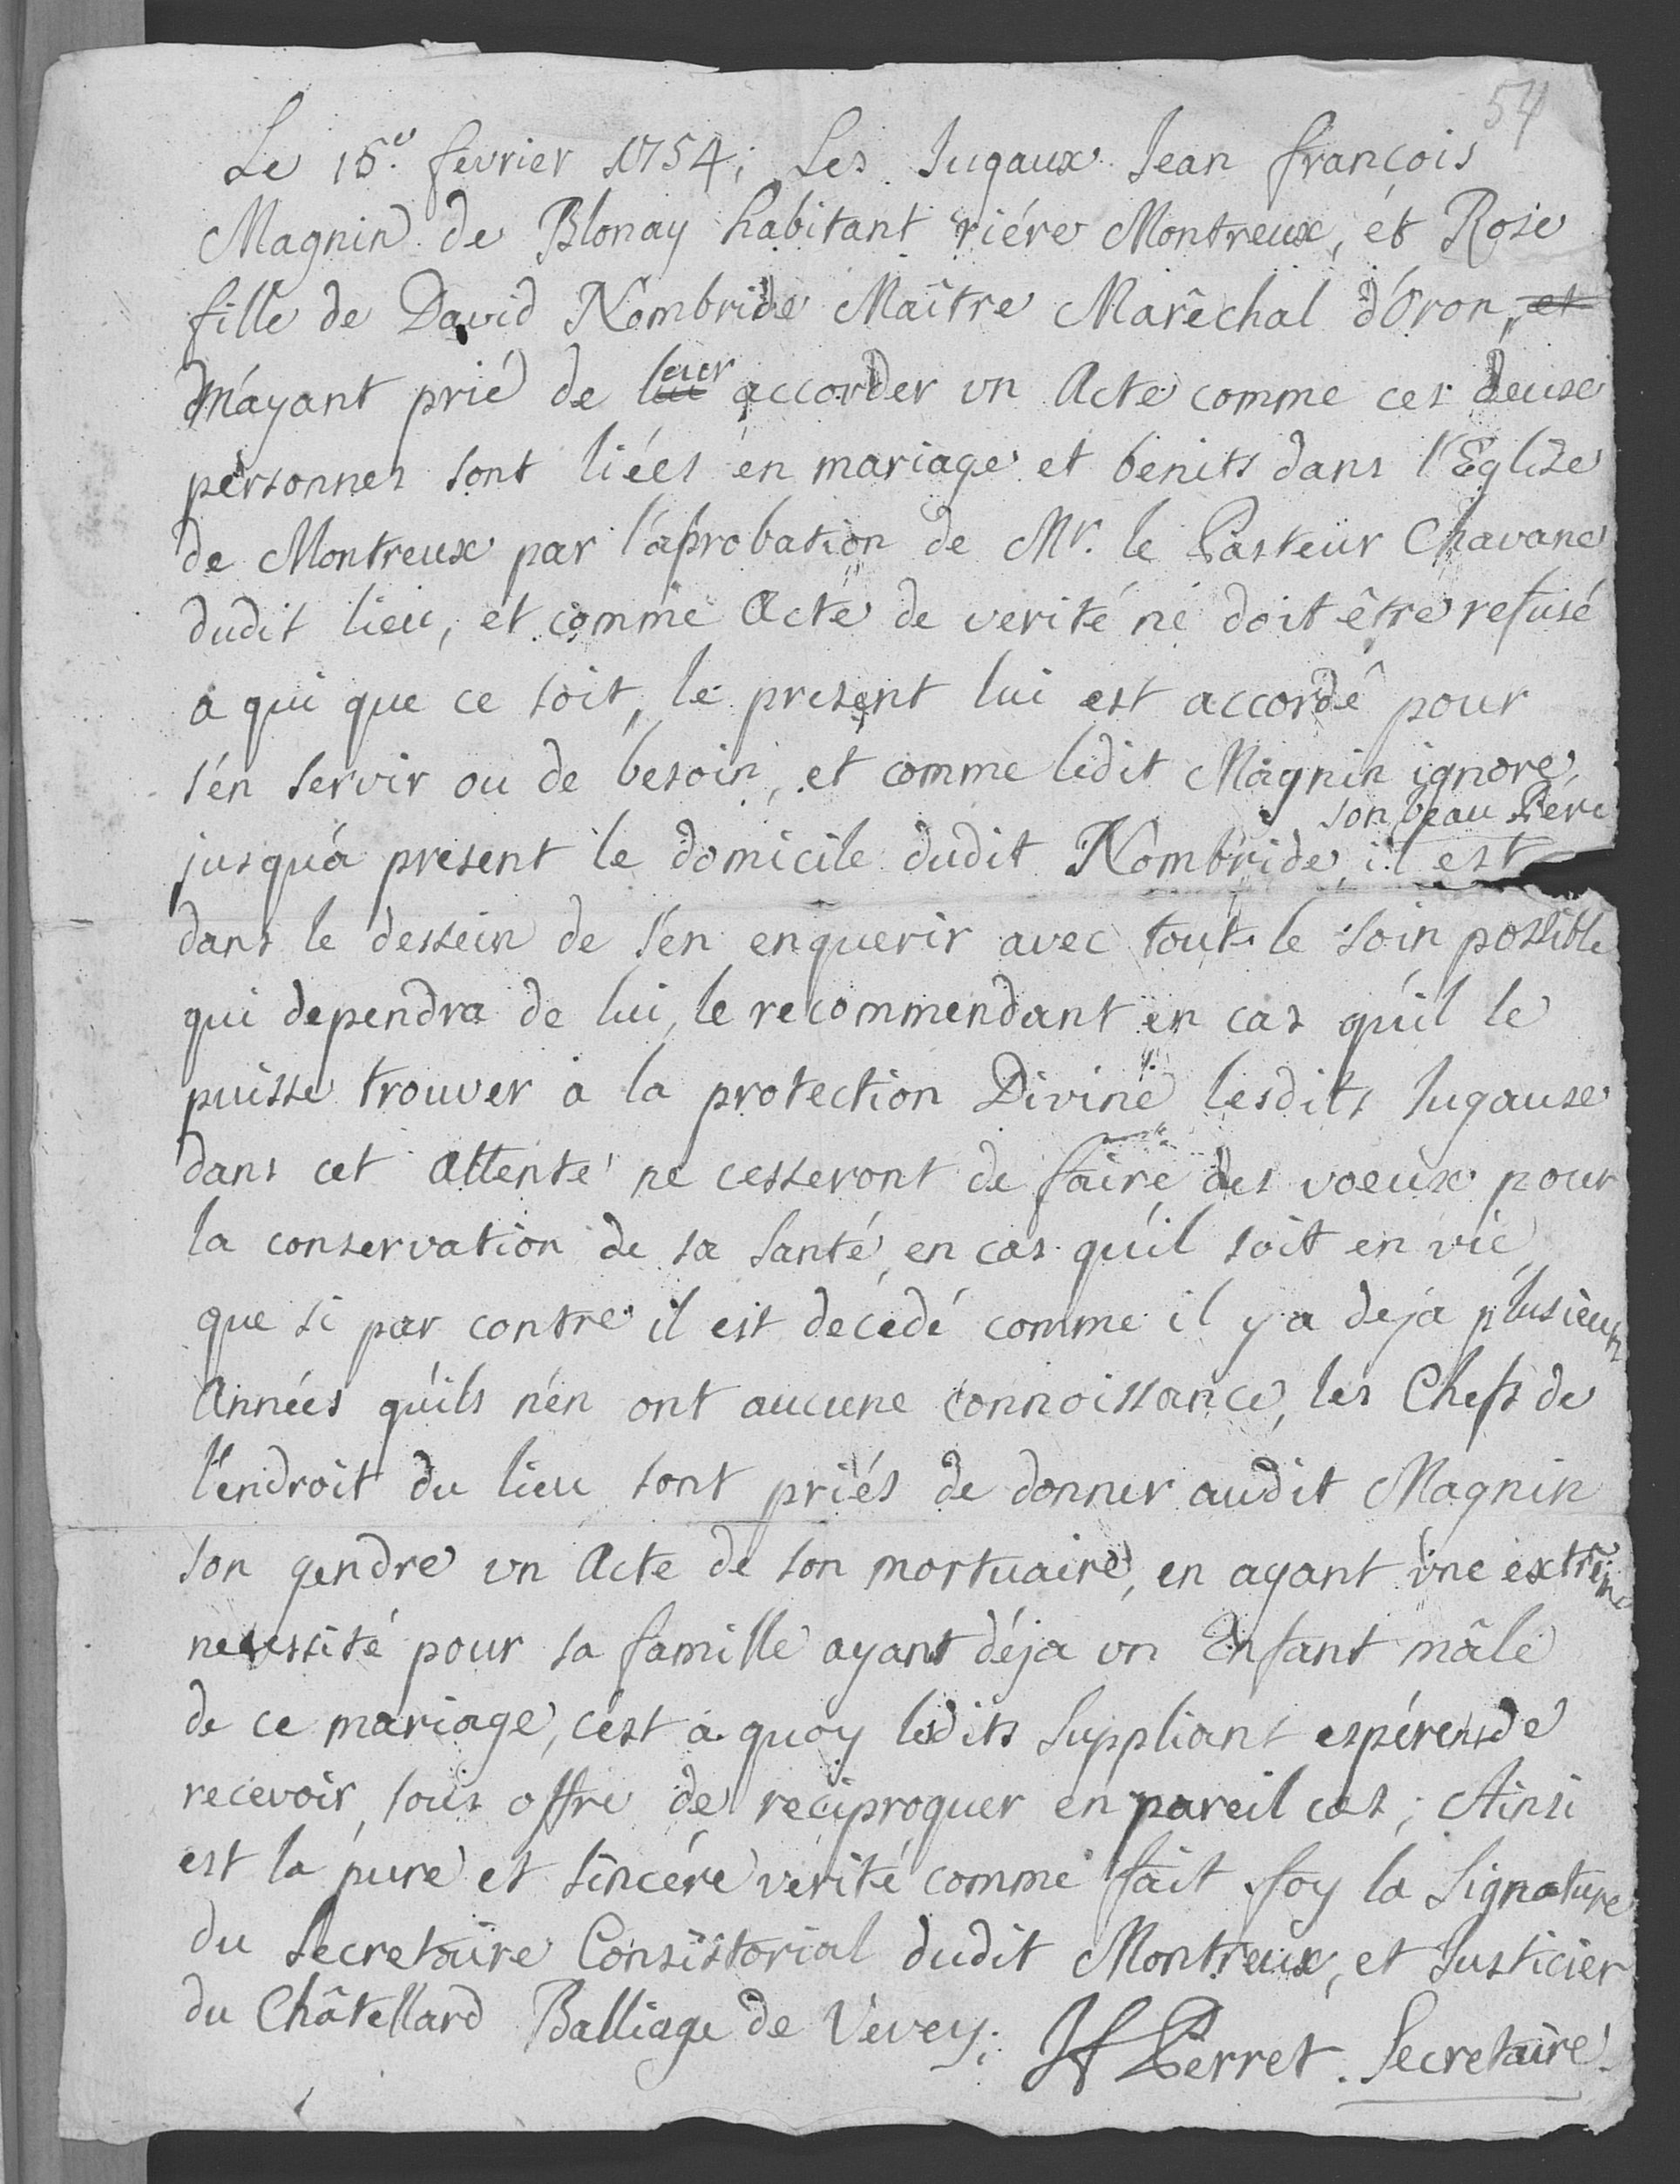 54
Le 15.e fevrier 1754; Les Jugaux Jean françois
Magnin de Blonay habitant riére Montreux, ét Rose
fille de David Nombride Maître Marêchal d'Oron, et
m'áyant prié de leur accorder un Acte comme ces deux
personnes sont liées en mariage et benits dans l'Eglize
de Montreux par l'áprobation de Mr. le Pasteur Chavane
dudit lieu, et comme Acte de verité ne doit être refusé
a qui que ce soit, le present lui est accordé pour
s'én servir ou de besoin, et comme ledit Magnin ignore
son beau Pére
jusqu'á present le domicile dudit Nombride, il est
dans le dessein de s'én enquerir avec tout le soin possible
qui dependra de lui, le recommendant en cas qu'il le
puisse trouver a la protection Divine lesdits Jugaux
dans cet attente ne cesseront de faire des voeux pour
la conservation de sa santé, en cas qu'il soit en vie,
que si par contre il est decedé comme il y a deja plusieurs
Années qu'ils n'én ont aucune connoissance, les Chefs de
l'éndroit du lieu sont priés de donner audit Magnin
son gendre un Acte de son mortuaire, en ayant une extrême
necessité pour sa famille ayant déja un Enfant mâle
de ce mariage, c'ést a quoy lesdits Suppliant espérent de
recevoir, sous offre de reciproquer en pareil cas; Ainsi
est la pure et sincére verité comme fait foy la Signature
du Secretaire Consistorial dudit Montreux, et Justicier
du Châtellard Balliage de Vevey; Jf Perret. Secretaire